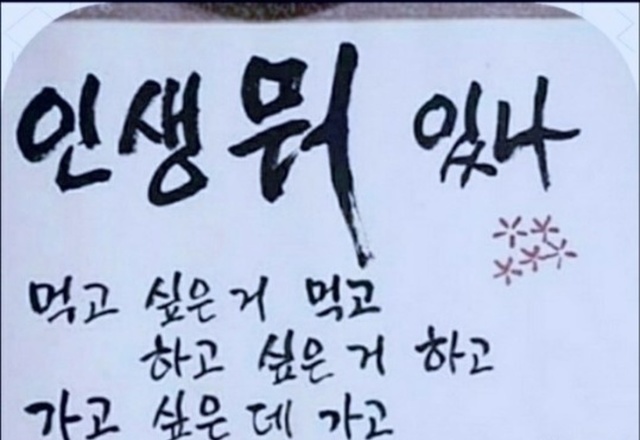 인생 뭐 있나
먹고 싶은거 먹고
하고 싶은거 하고
가고 싶은데 가고